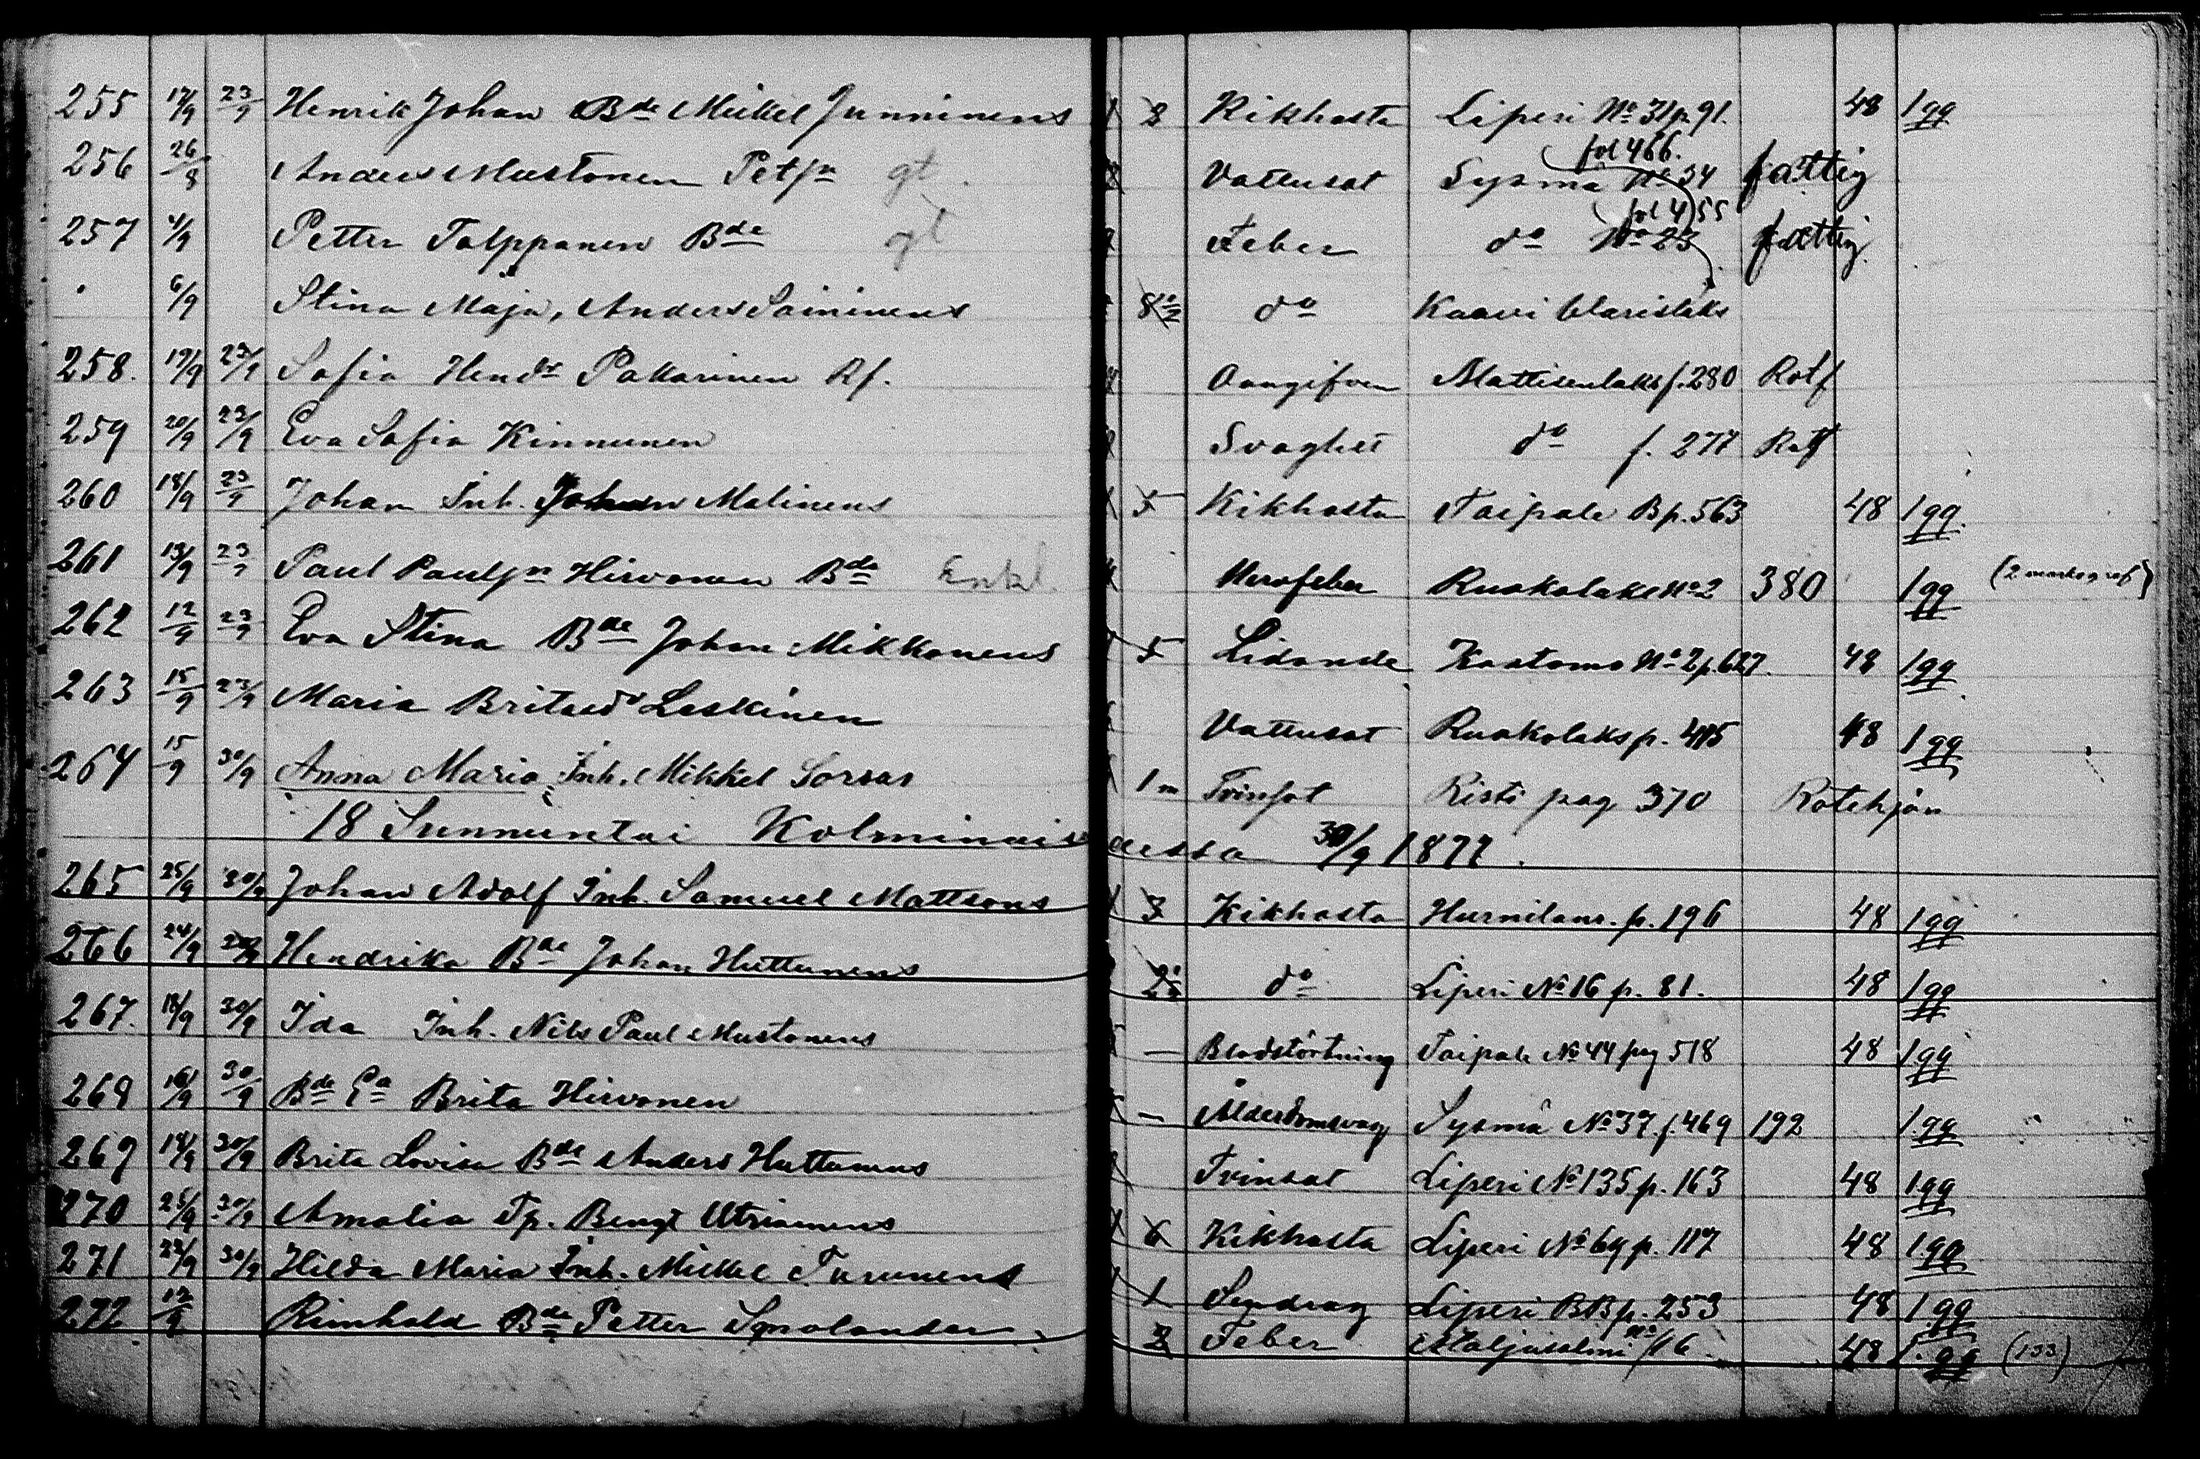 255 17/9 23/9 Henrik Johan Bde Mickel Junninens 2 Kikhosta Liperi No 31 p. 91. 48 1 qq
256 26/8 Anders Mustonen Petsn gt Vattusot Sysmä No 34 fol 466. fattig
257 4/9 Petter Tolppanen Bde gt Feber do No 23 fol 455 fattig
6/9 Stina Maja, Anders Saininens do Kaavi
258. 19/9 23/9 Sofia Hendr Pakarinen Rf. Oangifven Mattisenlaks f. 280 Rotf
259 20/9 23/9 Eva Sofia Kinnunen Svaghet do f. 277 Rotf
260 18/9 23/9 Johan Inh. Johan Malinens 5 Kikhosta Taipale B p. 563 48 1 qq.
261 13/9 23/9 Paul Paulsn Hirvonen Bde Enkl. Nervfeber Ruokolaks No 2 380 1 qq
262 12/9 23/9 Eva Stina Bde Johan Mikkonens 5 Lidande Kaatamo No 2 p. 627. 48 1 qq
263 15/9 23/9 Maria Brita Leskinen Vattusot Ruokolaks p. 415 48 1 qq
264 15/9 30/9 Anna Maria Inh. Mikkel Sorsas 1 m Tvinsot Risti pag 370 Rotehjon
18 Sunnuntai Kolminaisuudessa 30/9 1877.
265 25/9 30/9 Johan Adolf Inh. Samuel Mattsons 3 Kikhosta p. 196 48 1 qq
266 24/9 30/9 Hendrika Bde Johan Huttunens do Liperi No 16 p. 81. 48 1 qq
267. 18/9 30/9 Ida Inh. Nils Paul Mustonens — Blodstörtning Taipale No 44 pag 518 48 1 qq
268 16/9 30/9 Bde Ea Brita Hirvonen — Ålderdomsvag Sysmä No 37. f. 469 192 1 qq
269 18/9 30/9 Brita Lovisa Bde Anders Huttunens Tvinsot Liperi No 135 p. 163 48 1 qq
270 25/9 30/9 Amalia Tp. Bengt Utriainens 6 Kikhosta Liperi No 69 p. 117 48 1 qq
271 22/9 30/9 Hilda Maria Inh. Mickel Turunens 1 Slagdrag Liperi BB p. 253 48 1 qq
272 12/9 Rimhold Bde Petter Smolander 3 Feber No 16. 48 1. qq (133)